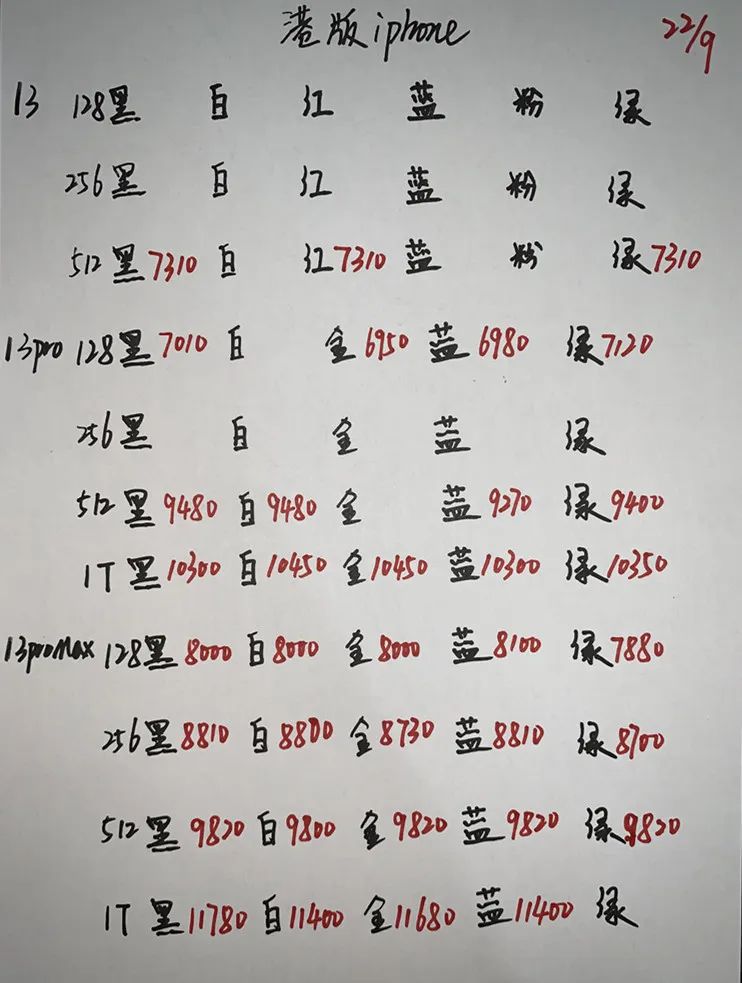 港版iphone 22/9
13 128黑 白 红 蓝 粉 绿
256黑 白 红 蓝 粉 绿
512黑7310 白 红7310 蓝 粉 绿7310
13pro 128黑7010 白 金6950 蓝6980 绿7120
256黑 白 金 蓝 绿
512黑9480 白9480 金 蓝9270 绿9400
1T黑10300 白10450 金10450 蓝10300 绿10350
13proMax 128黑8000 白8000 金8000 蓝8100 绿7880
256黑8810 白8800 金8730 蓝8810 绿8700
512黑9820 白9800 金9820 蓝9820 绿9820
1T黑11780 白11400 金11680 蓝11400 绿